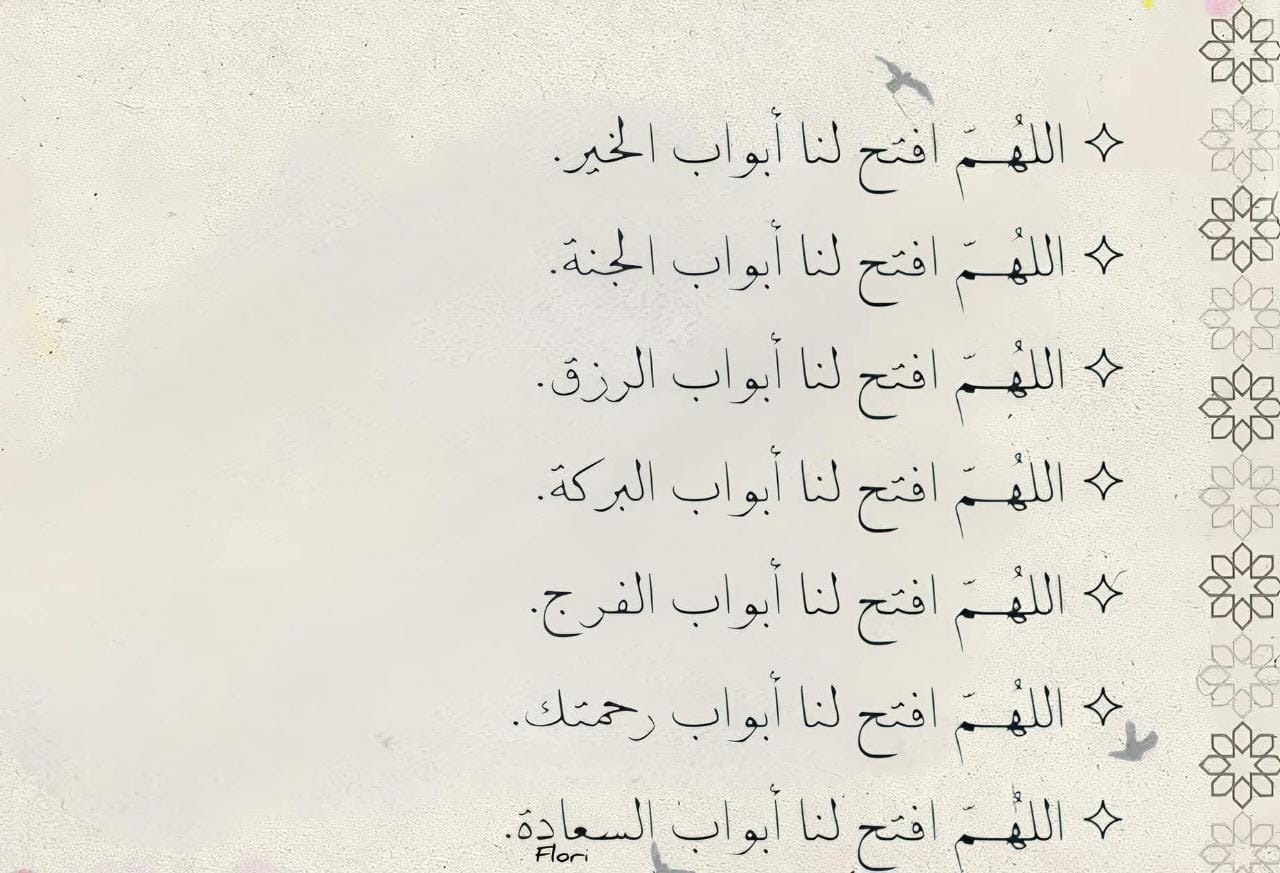 ✧ اللهُمّ افتح لنا أبواب الخير.
✧ اللهُمّ افتح لنا أبواب الجنة.
✧ اللهُمّ افتح لنا أبواب الرزق.
✧ اللهُمّ افتح لنا أبواب البركة.
✧ اللهُمّ افتح لنا أبواب الفرج.
✧ اللهُمّ افتح لنا أبواب رحمتك.
✧ اللهُمّ افتح لنا أبواب السعادة.
Flori